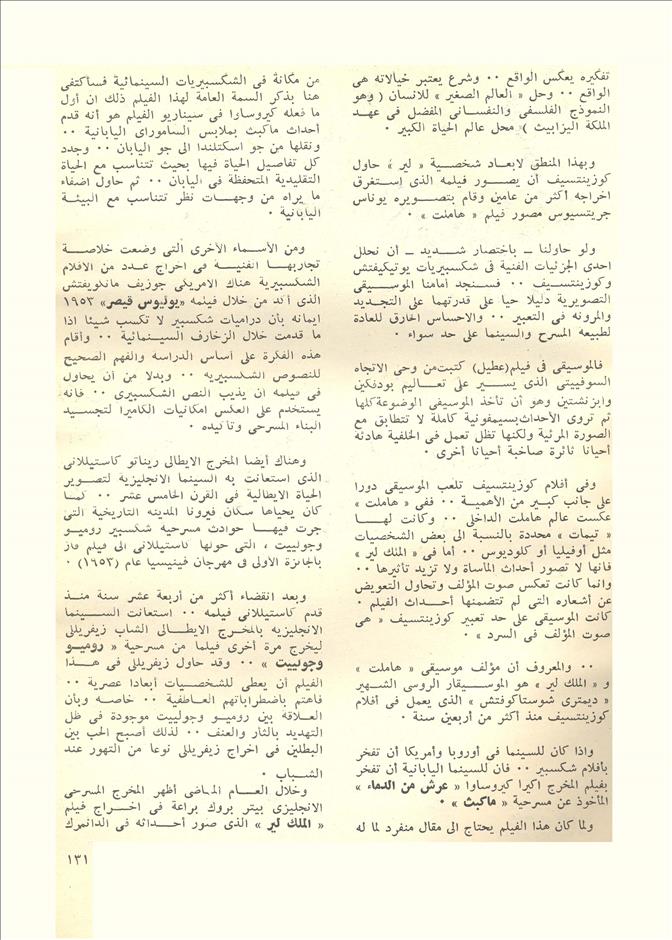 تفكيره يعكس الواقع ٠٠ وشرع يعتبر خيالاته هى
الواقع ٠٠ وحل « العالم الصغير » للانسان ( وهو
النموذج الفلسفى والنفسانى المفضل فى عهد
الملكة اليزابيث )، محل عالم الحياة الكبير ٠
وبهذا المنطق لابعاد شخصية « لير » حاول
كوزينتسيف أن يصور فيلمه الذى استغرق
اخراجه أكثر من عامين وقام بتصويره يوناس
جريتسيوس مصور فيلم « هاملت » ٠
ولو حاولنا ــ باختصار شديد ــ أن نحلل
احدى الجزئيات الفنية فى شكسبيريات يوتيكيفتش
وكوزينتسيف ٠٠ فسنجد أمامنا الموسيقى
التصويرية دليلا حيا على قدرتهما على التجديد
والمرونه فى التعبير ٠٠ والاحساس الخارق للعادة
لطبيعه المسرح والسينما على حد سواء ٠
فالموسيقى فى فيلم (عطيل) كتبت من وحى الاتجاه
السوفييتى الذى يسير على تعاليم بودفكين
وايزنشتين وهو أن تأخذ الموسيقى الموضوعة كلها
ثم تروى الأحداث بسيمفونية كاملة لا تتطابق مع
الصورة المرئية ولكنها تظل تعمل فى الخلفية هادئه
أحيانا ثائرة صاخبة أحيانا أخرى ٠
وفى أفلام كوزينتسيف تلعب الموسيقى دورا
على جانب كبير من الأهمية ٠٠ ففى « هاملت »
عكست عالم هاملت الداخلى ٠٠ وكانت لهــا
« تيمات » محددة بالنسبة الى بعض الشخصيات
مثل أوفيليا أو كلوديوس ٠٠ أما فى « الملك لير »
فانها لا تصور أحداث المأساة ولا تزيد تأثيرها ٠٠
وانما كانت تعكس صوت المؤلف وتحاول التعويض
عن أشعاره التى لم تتضمنها أحداث الفيلم ٠
كانت الموسيقى على حد تعبير كوزينتسيف « هى
صوت المؤلف فى السرد » ٠
٠٠ والمعروف أن مؤلف موسيقى « هاملت »
و « الملك لير » هو الموسيقار الروسى الشهير
« ديمترى شوستاكوفتش » الذى يعمل فى أفلام
كوزنتسيف منذ أكثر من أربعين سنة ٠
واذا كان للسينما فى أوروبا وأمريكا أن تفخر
بأفلام شكسبير ٠٠ فان للسينما اليابانية أن تفخر
بفيلم المخرج اكيرا كيروساوا « عرش من الدماء »
المأخوذ عن مسرحية « ماكبث » ٠
ولما كان هذا الفيلم يحتاج الى مقال منفرد لما له
من مكانة فى الشكسبيريات السينمائية فسأكتفى
هنا بذكر السمة العامة لهذا الفيلم ذلك ان أول
ما فعله كيروساوا فى سيناريو الفيلم هو أنه قدم
أحداث ماكبث بملابس الساموراى اليابانية ٠٠
ونقلها من جو اسكتلندا الى جو اليابان ٠٠ وجدد
كل تفاصيل الحياة فيها بحيث تتناسب مع الحياة
التقليدية المتحفظة فى اليابان ٠٠ ثم حاول اضفاء
ما يراه من وجهات نظر تتناسب مع البيئة
اليابانية ٠
ومن الأسماء الأخرى التى وضعت خلاصة
تجاربها الفنية فى اخراج عدد من الافلام
الشكسبيرية هناك الامريكى جوزيف مانكويفتش
الذى أكد من خلال فيلمه «يوليوس قيصر» ١٩٥٣
ايمانه بأن دراميات شكسبير لا تكسب شيئا اذا
ما قدمت خلال الزخارف السينمائية ٠٠ وأقام
هذه الفكرة على أساس الدراسه والفهم الصحيح
للنصوص الشكسبيريه ٠٠ وبدلا من أن يحاول
فى فيلمه ان يذيب النص الشكسبيرى ٠٠ فانه
يستخدم على العكس امكانيات الكاميرا لتجسيد
البناء المسرحى وتأكيده ٠
وهناك أيضا المخرج الايطالى ريناتو كاستيلانى
الذى استعانت به السينما الانجليزية لتصوير
الحياة الايطالية فى القرن الخامس عشر ٠٠ كما
كان يحياها سكان فيرونا المدينه التاريخية التى
جرت فيها حوادث مسرحية شكسبير روميو
وجولييت ، التى حولها كاستيلانى الى فيلم فاز
بالجائزة الأولى فى مهرجان فينيسيا عام (١٦٥٣) ٠
وبعد انقضاء أكثر من أربعة عشر سنة منذ
قدم كاستيلانى فيلمه ٠٠ استعانت السينما
الانجليزيه بالمخرج الايطالى الشاب زيفريللى
ليخرج مرة أخرى فيلما من مسرحية « روميو
وجولييت » ٠٠ وقد حاول زيفريللى فى هذا
الفيلم أن يعطى للشخصيات أبعادا عصرية ٠٠
فاهتم باضطراباتهم العاطفية ٠٠ خاصه وبأن
العلاقة بين روميو وجولييت موجودة فى ظل
التهديد بالثأر والعنف ٠٠ لذلك أصبح الحب بين
البطلين فى اخراج زيفريللى نوعا من التهور عند
الشباب ٠
وخلال العام الماضى أظهر المخرج المسرحى
الانجليزى بيتر بروك براعة فى اخراج فيلم
« الملك لير » الذى صور أحداثه فى الدانمرك
١٣١